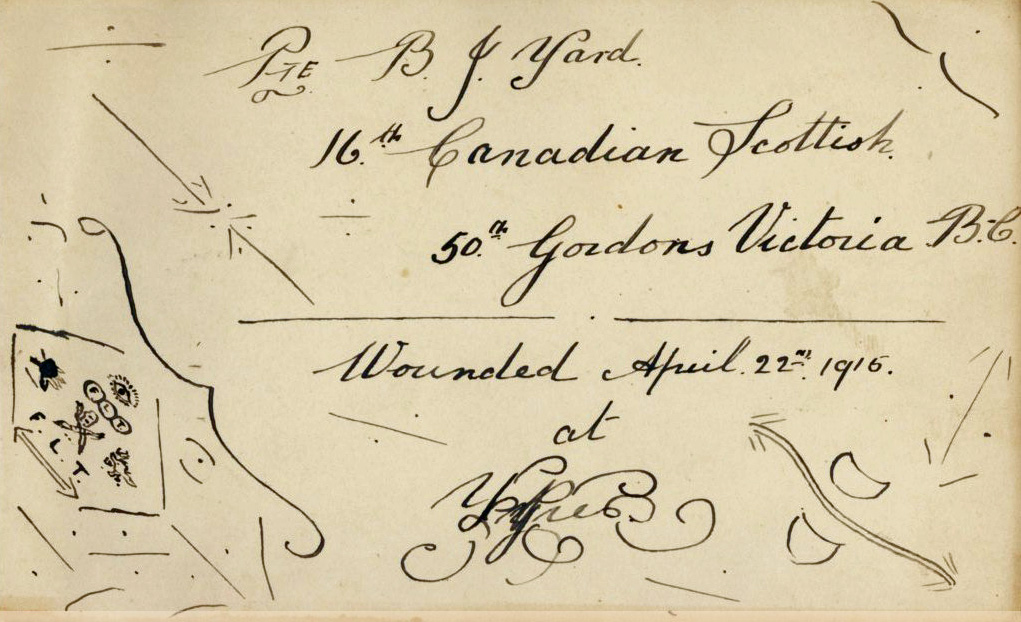 Pte B. J. Yard.
16.th Canadian Scottish.
50.th Gordons Victoria B.C.
Wounded April. 22nd. 1915.
at
Ypres
F L T
F. L. T.